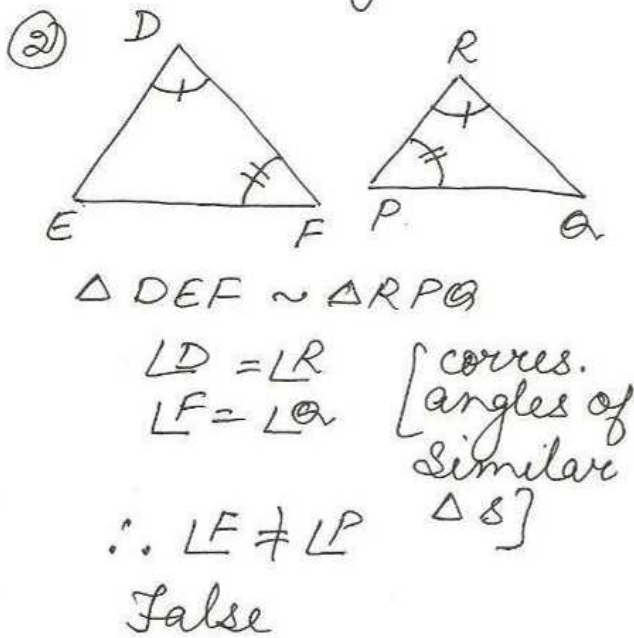 ② D R
E F P. Q
△ DEF ~ △RPQ
∠D = ∠R [corres.
∠F = ∠Q angles of
similar
△s]
∴ ∠F ≠ ∠P
False